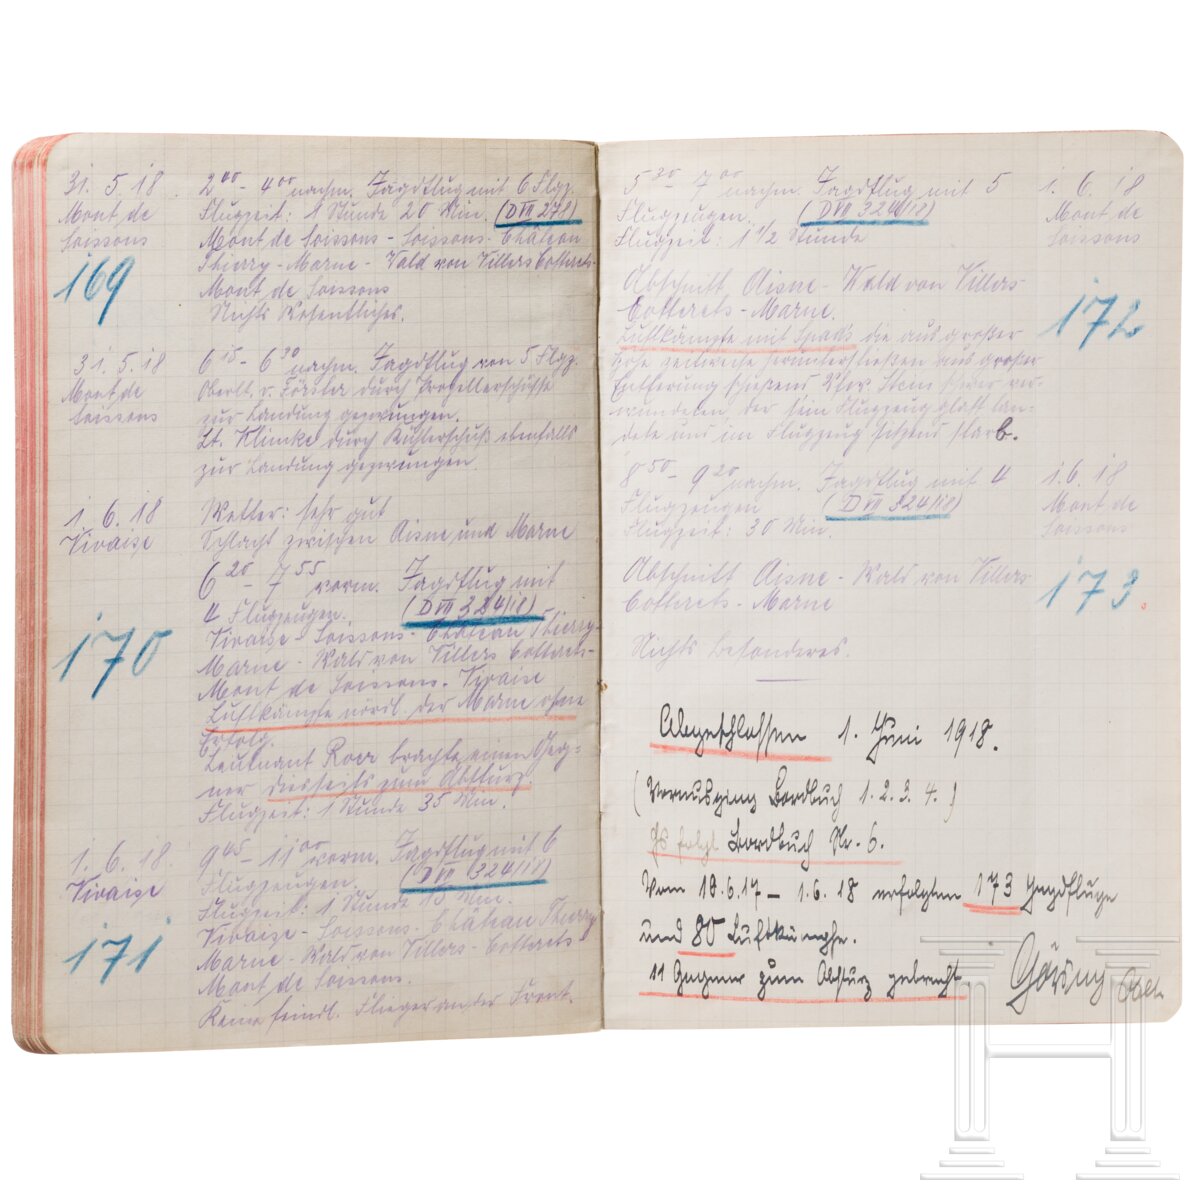 31. 5. 18
Mont de
Soissons
169
2⁰⁰ - 4⁰⁰ nachm. Jagdflug mit 6 Flgz.
Flugzeit: 1 Stunde 20 Min. (D VII 278)
Mont de Soissons - Soissons - Château
Thierry - Marne - Wald von Villers Cotterets-
Mont de Soissons
Nichts Wesentliches.
31. 5. 18
Mont de
Soissons
6¹⁵ - 6³⁰ nachm. Jagdflug von 5 Flgz.
Oberlt. v. Förster durch Propellerschüsse
zur Landung gezwungen.
Lt. Klimke durch Kühlerschuß ebenfalls
zur Landung gezwungen.
1. 6. 18
Vivaise
170
Wetter: sehr gut
Schlacht zwischen Aisne und Marne
6²⁰ - 7⁵⁵ vorm. Jagdflug mit
4 Flugzeugen. (D VII 324/18)
Vivaise - Soissons - Château Thierry-
Marne - Wald von Villers Cotterets-
Mont de Soissons - Vivaise
Luftkämpfe nördl. der Marne ohne
Erfolg.
Leutnant Roer brachte einen Geg-
ner diesseits zum Absturz.
Flugzeit: 1 Stunde 35 Min.
1. 6. 18
Vivaise
171
9⁴⁵ - 11⁰⁰ vorm. Jagdflug mit 6
Flugzeugen. (D VII 324/18)
Flugzeit: 1 Stunde 15 Min.
Vivaise - Soissons - Château Thierry
Marne - Wald von Villers - Cotterets-
Mont de Soissons.
Keine feindl. Flieger an der Front.
5³⁰ - 7⁰⁰ nachm. Jagdflug mit 5
Flugzeugen. (D VII 324/18)
Flugzeit: 1 1/2 Stunde
1. 6. 18
Mont de
Soissons
172
Abschnitt Aisne - Wald von Villers
Cotterets - Marne.
Luftkämpfe mit Spads die aus großer
Höhe zeitweise herunterstießen aus großer
Entfernung schießend schwer ver-
wundeten, der sein Flugzeug glatt lan-
dete und im Flugzeug sitzend starb.
8⁵⁰ - 9²⁰ nachm. Jagdflug mit 4
Flugzeugen (D VII 324/18)
Flugzeit: 30 Min.
1. 6. 18
Mont de
Soissons
173.
Abschnitt Aisne - Wald von Villers
Cotterets - Marne
Nichts Besonderes.
Abgeschlossen 1. Juni 1918.
(Vorausging Bordbuch 1. 2. 3. 4.)
Es folgt Bordbuch Nr. 6.
Vom 19.6.17 - 1.6.18 erfolgten 173 Jagdflüge
und 80 Luftkämpfe.
11 Gegner zum Absturz gebracht.
Göring
H